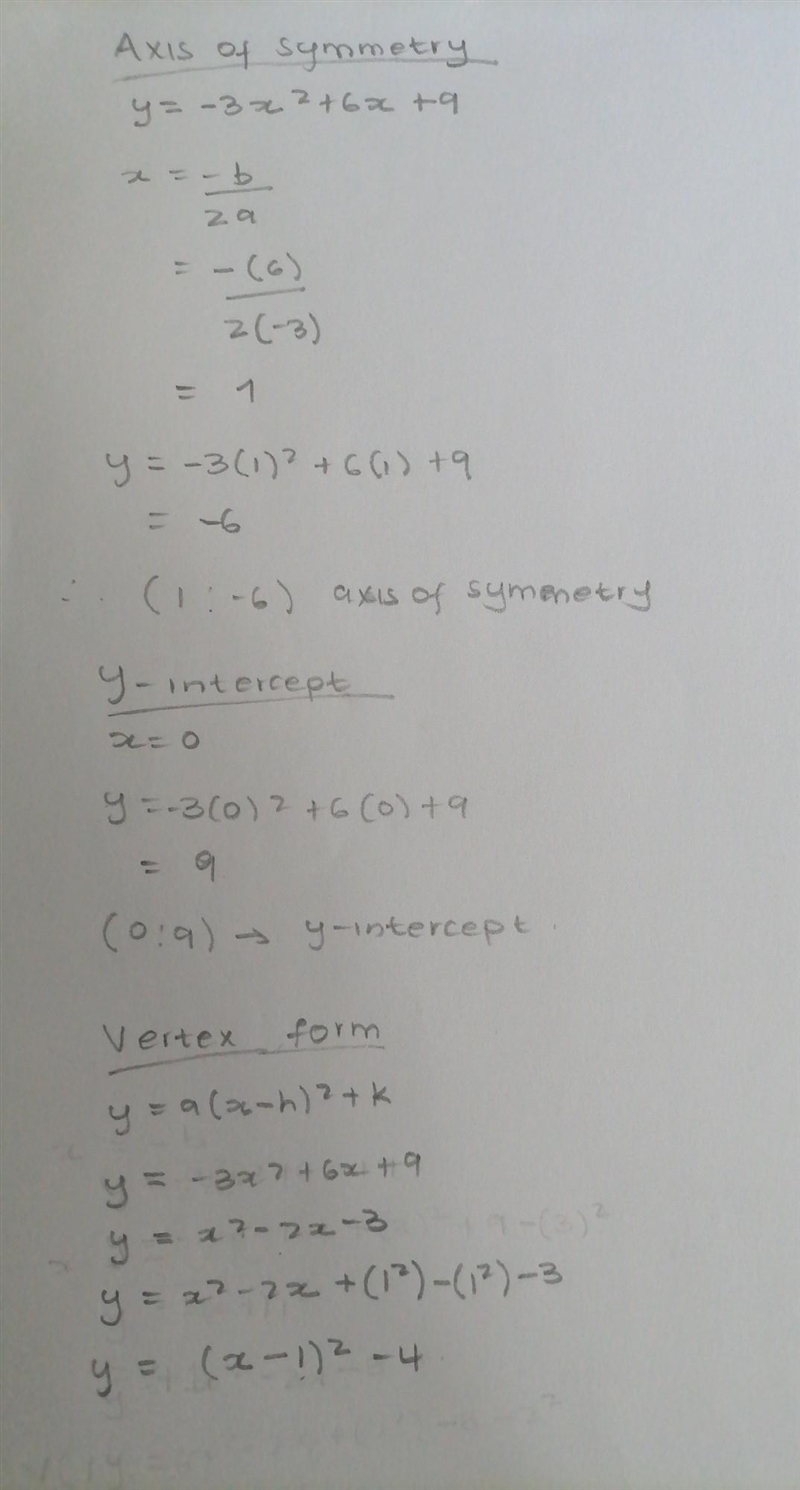 Axis of symmetry
y = -3x² + 6x + 9
x = -b
2a
= -(6)
2(-3)
= 1
y = -3(1)² + 6(1) + 9
= -6
∴ (1 : -6) axis of symmetry
y-intercept
x = 0
y = -3(0)² + 6(0) + 9
= 9
(0 : 9) → y-intercept.
Vertex form
y = a(x-h)² + k
y = -3x² + 6x + 9
y = x² - 2x - 3
y = x² - 2x + (1²) - (1²) - 3
y = (x - 1)² - 4